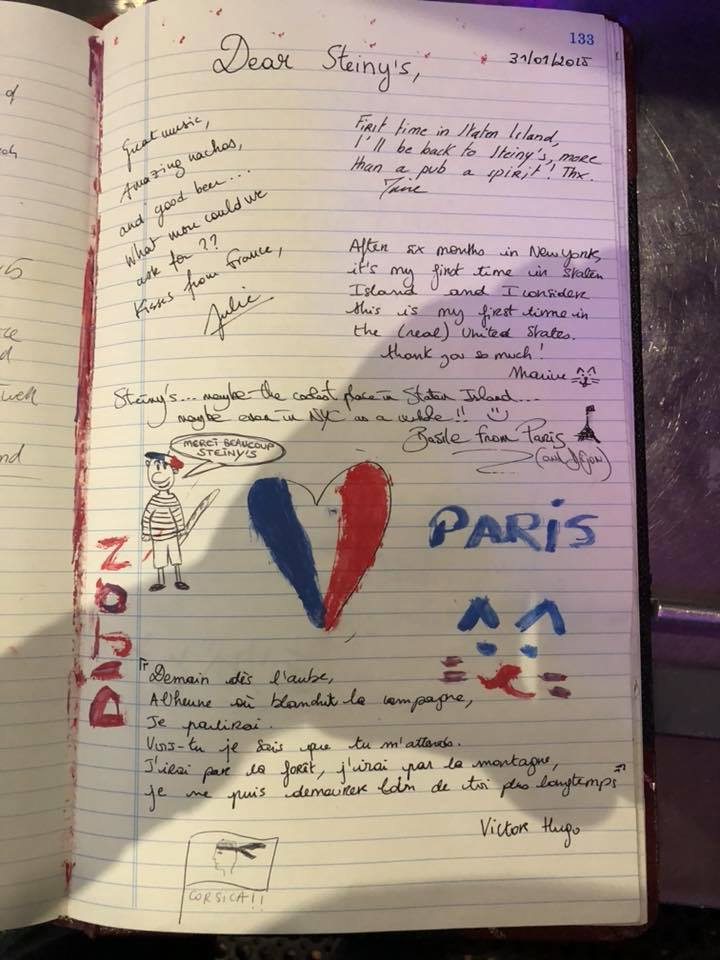 133
Dear Steiny's,
31/01/2018
Great music,
Amazing nachos,
and good beer....
What more could we
ask for ??
Kisses from France,
Julie
First time in Staten Island,
I'll be back to Steiny's, more
than a pub a spirit! Thx.
After six months in New York,
it's my first time in Staten
Island and I consider
this is my first time in
the (real) United States.
thank you so much!
Marine
Steiny's... maybe the coolest place in Staten Island...
maybe even in NYC as a whole !!
Basile from Paris
(and Dijon)
MERCI BEAUCOUP
STEINY'S
PARIS
DIJON
"Demain dès l'aube,
A l'heure où blanchit la campagne,
Je partirai.
Vois-tu je sais que tu m'attends.
J'irai par la forêt, j'irai par la montagne,
je ne puis demeurer loin de toi plus longtemps"
Victor Hugo
CORSICA!!
of
well
nd